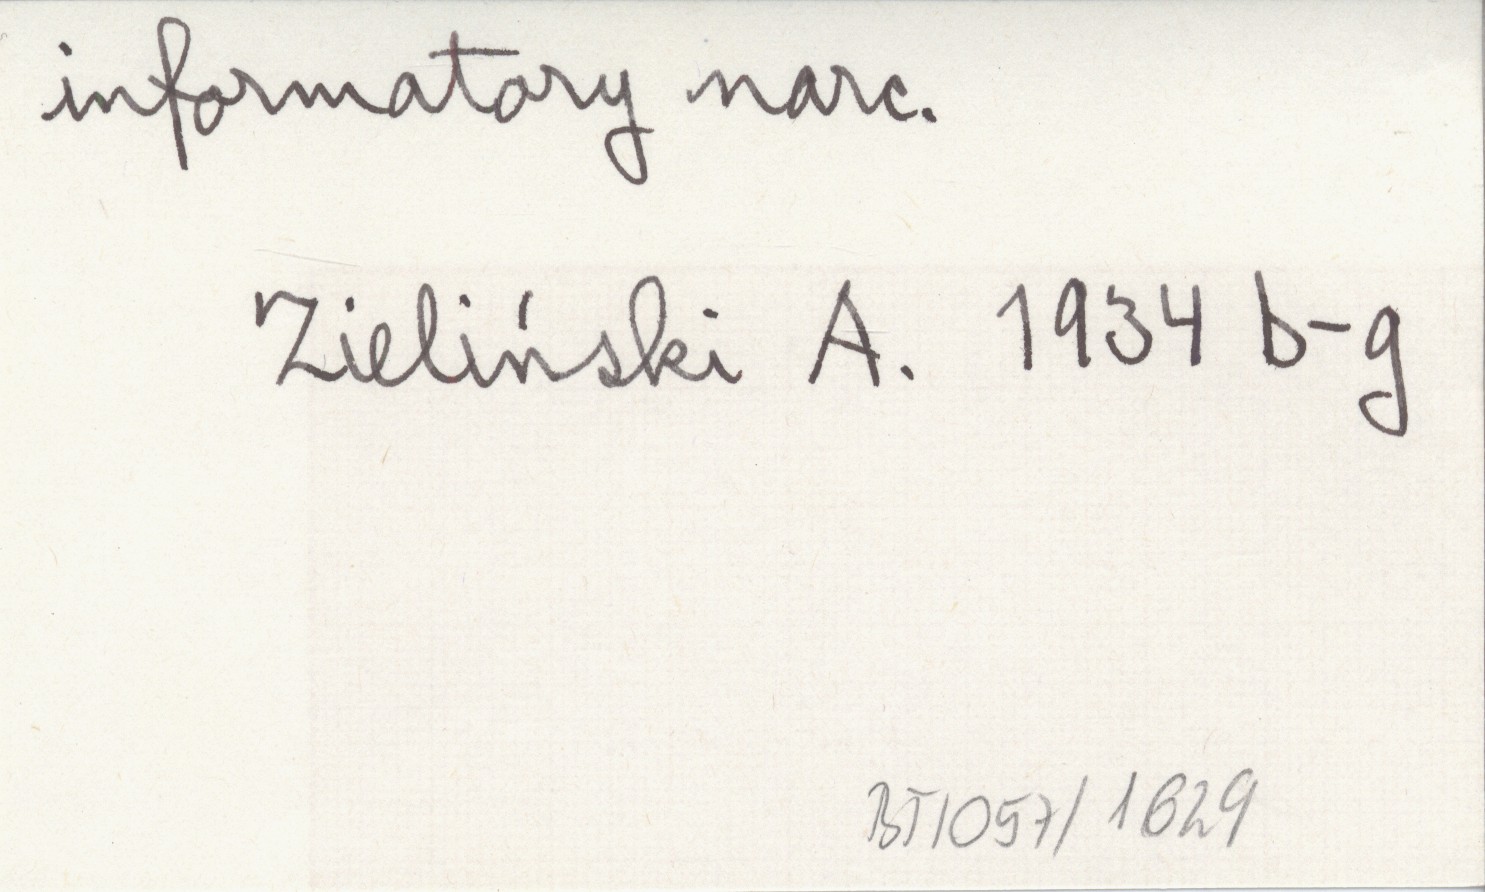 informatory narc.
Zieliński A. 1934 b-g
BT/057/1629